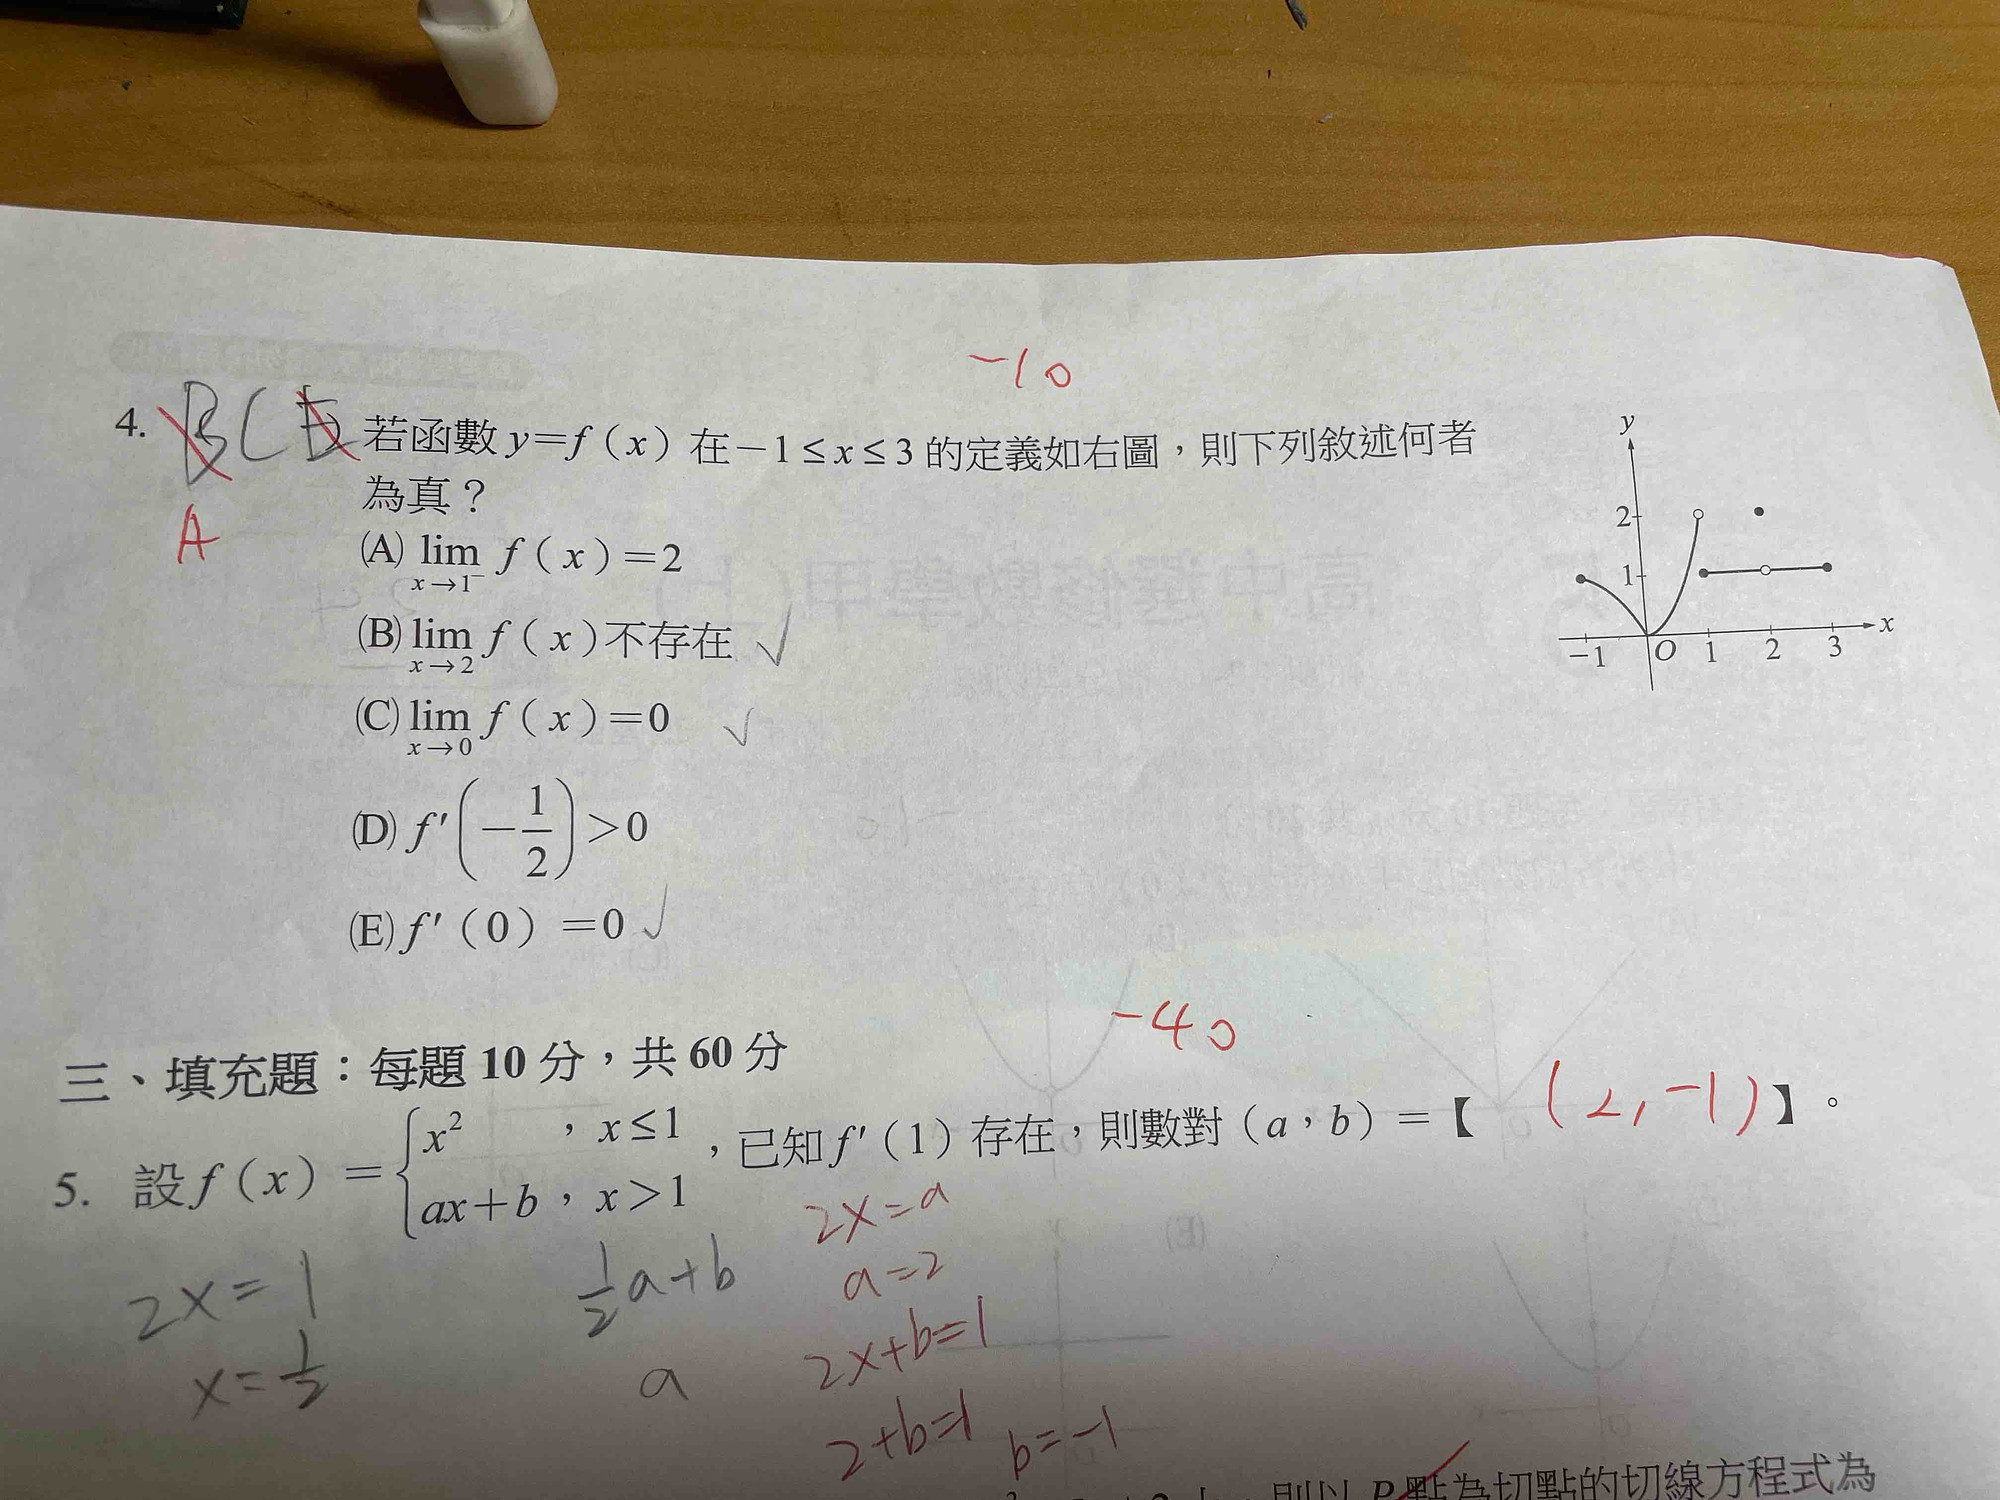 -10
4. BCE 若函數 y=f(x) 在 -1≤x≤3 的定義如右圖,則下列敘述何者
為真?
A
(A) lim_{x→1⁻} f(x)=2
(B) lim_{x→2} f(x)不存在 ✓
(C) lim_{x→0} f(x)=0 ✓
(D) f′(-1/2)>0
(E) f′(0)=0 ✓
y
2
1
-1 O 1 2 3 x
-40
三、填充題:每題 10 分,共 60 分
5. 設 f(x)={x² , x≤1 ; ax+b , x>1 ,已知 f′(1) 存在,則數對(a,b)=【 (2,-1) 】。
2x=1
x=1/2
1/2a+b
a
2x=a
a=2
2x+b=1
2+b=1 b=-1
則以 P 點為切點的切線方程式為